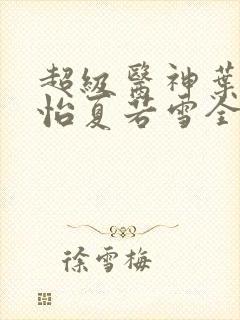 超級醫神葉
怡夏若雪全
徐雪梅